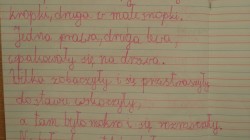 kropki, druga w małe snopki.
Jedna prawa, druga lewa,
wpakowały się na drzewa.
Wilka zobaczyły i się przestraszyły
do stawu wskoczyły,
a tam było mokro i się rozmoczyły.